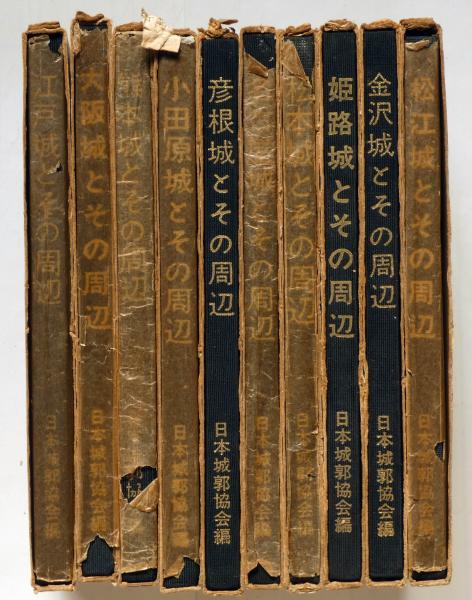 江戸城とその周辺
日本城
大阪城とその周辺
日本城郭協会編
熊本城とその周辺
小田原城とその周辺
日本城郭協会編
彦根城とその周辺
日本城郭協会編
城とその周辺
日本城
本城とその周辺
日本
姫路城とその周辺
日本城郭協会編
金沢城とその周辺
日本城郭協会編
松江城とその周辺
日本城郭協会編